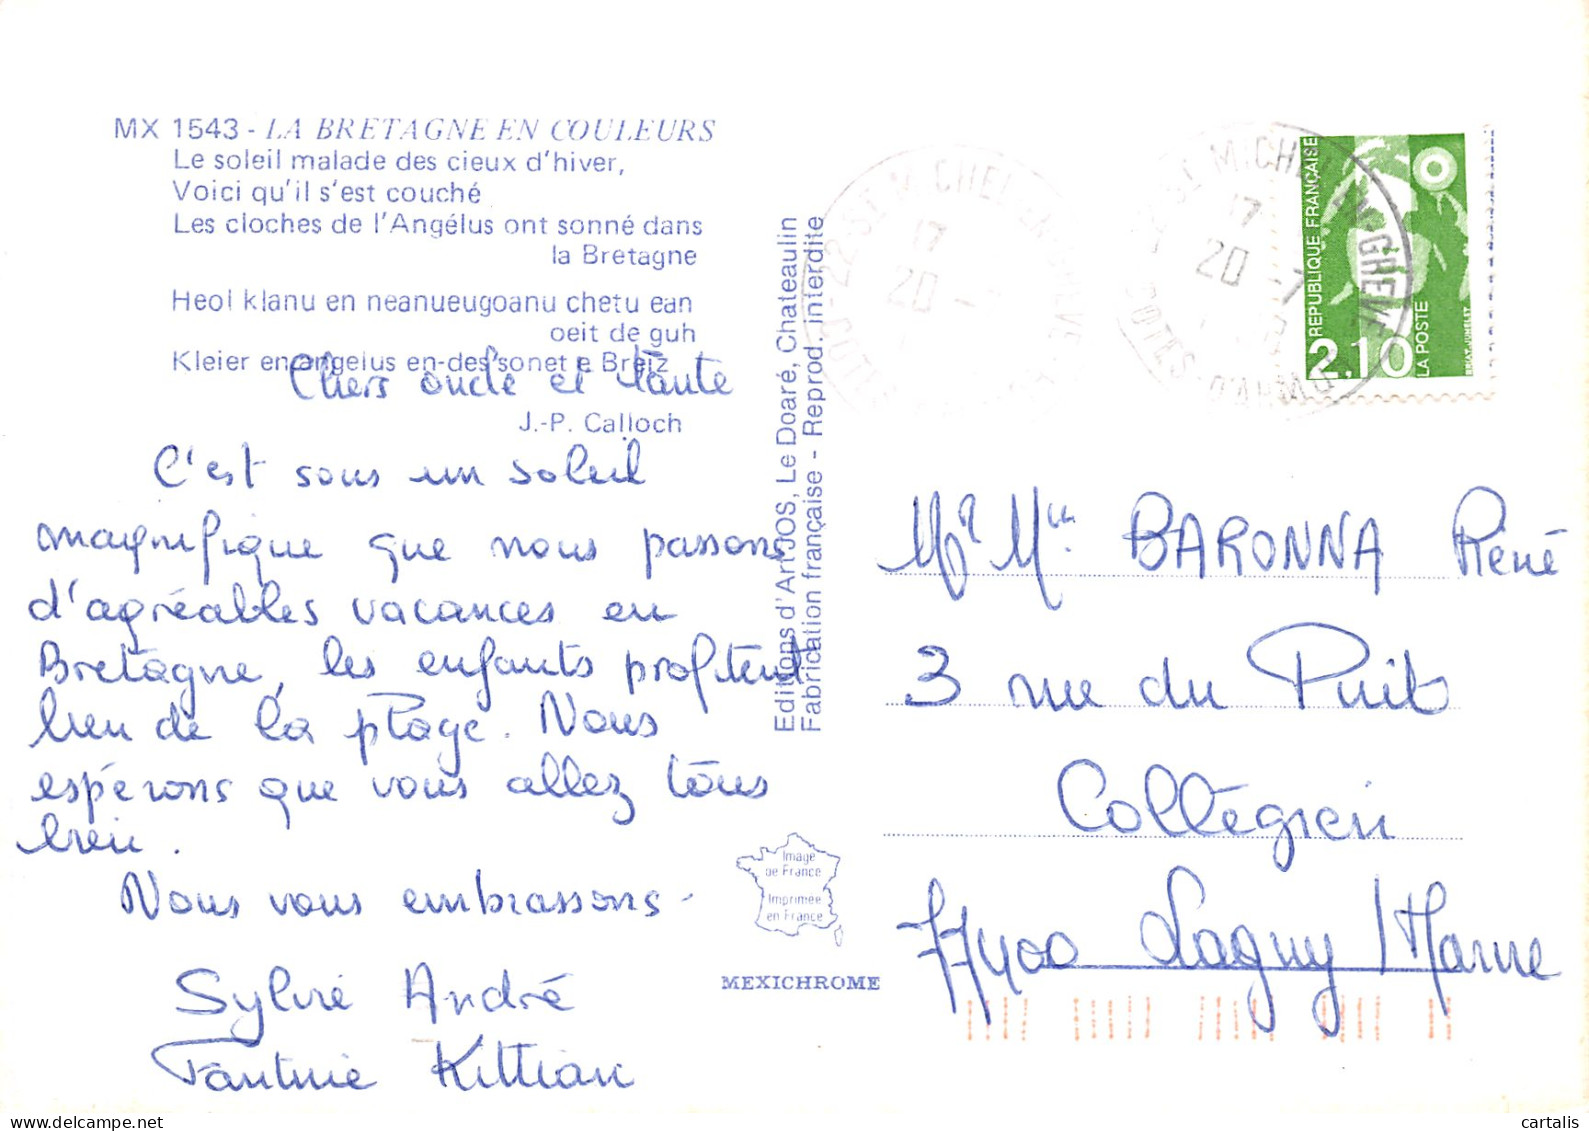 MX 1543 - LA BRETAGNE EN COULEURS
Le soleil malade des cieux d'hiver,
Voici qu'il s'est couché
Les cloches de l'Angélus ont sonné dans
la Bretagne
Heol klanu en neanueugoanu chetu ean
oeit de guh
Kleier en angelus en-des sonet e Breiz
J.-P. Calloch
Chers oncle et tante
C'est sous un soleil
magnifique que nous passons
d'agréables vacances en
Bretagne, les enfants profitent
bien de la plage. Nous
espérons que vous allez tous
bien.
Nous vous embrassons.
Sylvie André
Kittian
Editions d'Art JOS, Le Doaré, Chateaulin
Fabrication française - Reprod. interdite
Image
de France
Imprimée
en France
MEXICHROME
22 ST MICHEL EN GREVE
17
20 -
ST MICHEL EN-GREVE
17
20 -7
COTES-D'ARMOR
REPUBLIQUE FRANÇAISE
2,10
LA POSTE
BRIAT-JUMELET
Mr Mme BARONNA René
3 rue du Puits
Collégien
77400 Lagny/Marne
cartalis